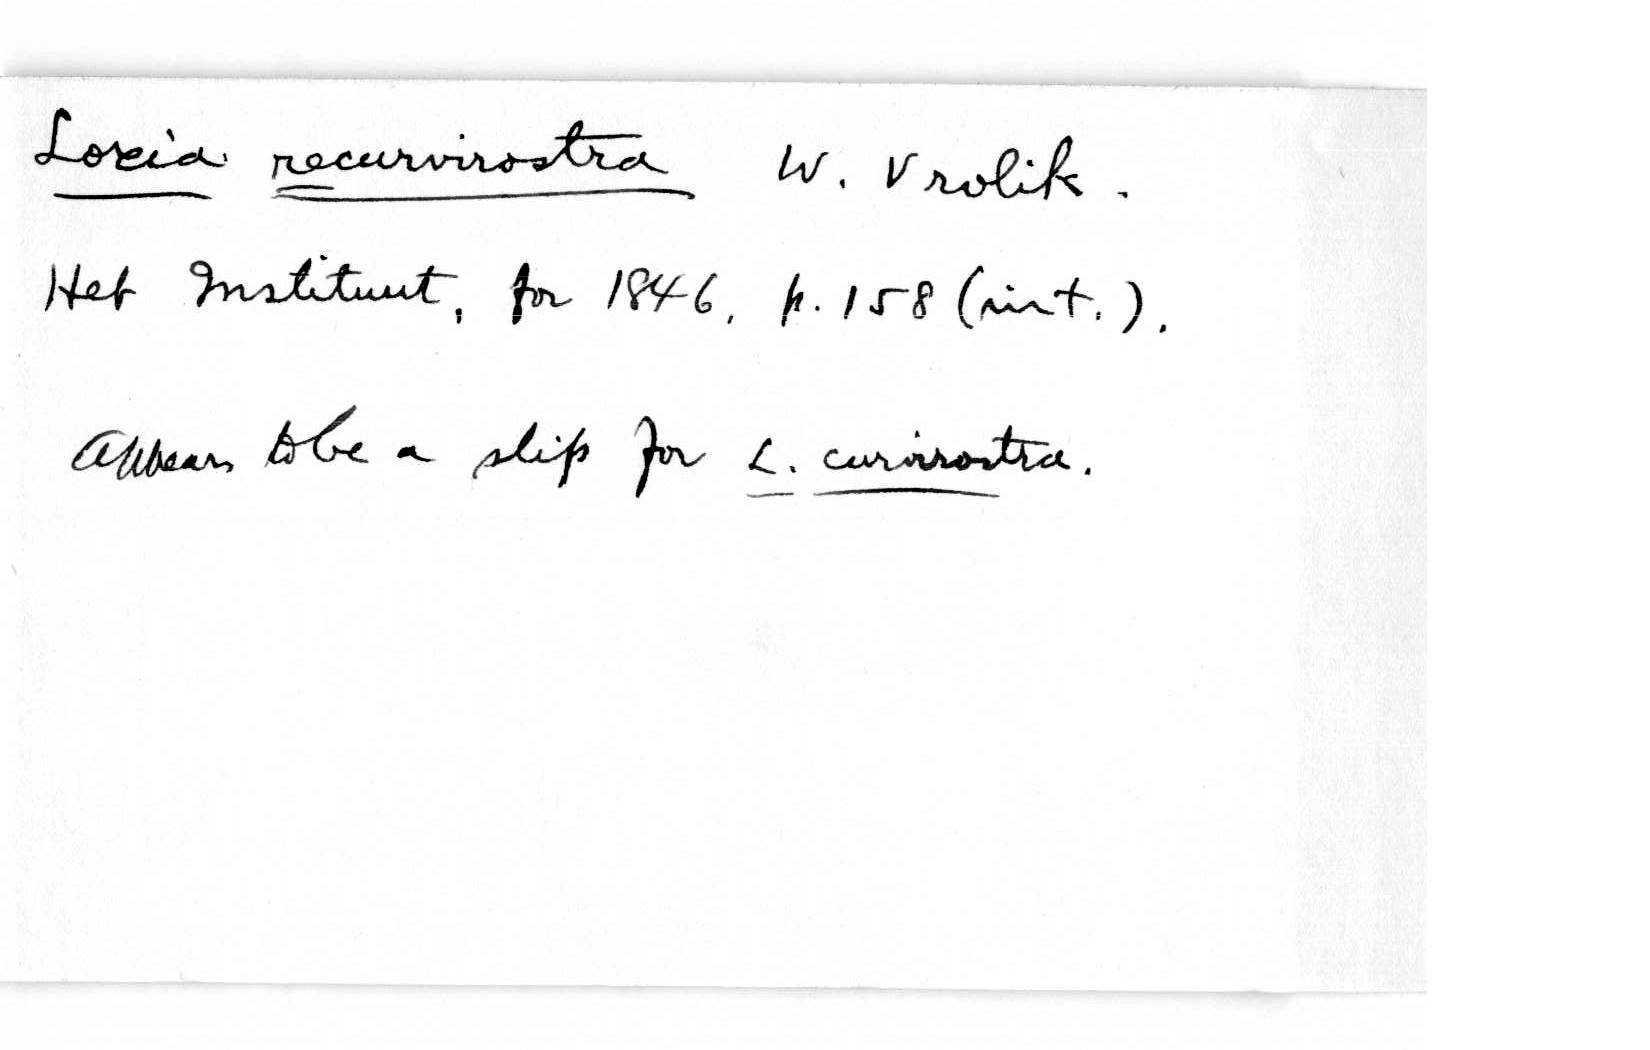 Loxia recurvirostra W. Vrolik.
Het Instituut, for 1846, p. 158 (in t.).
Appears to be a slip for L. curvirostra.